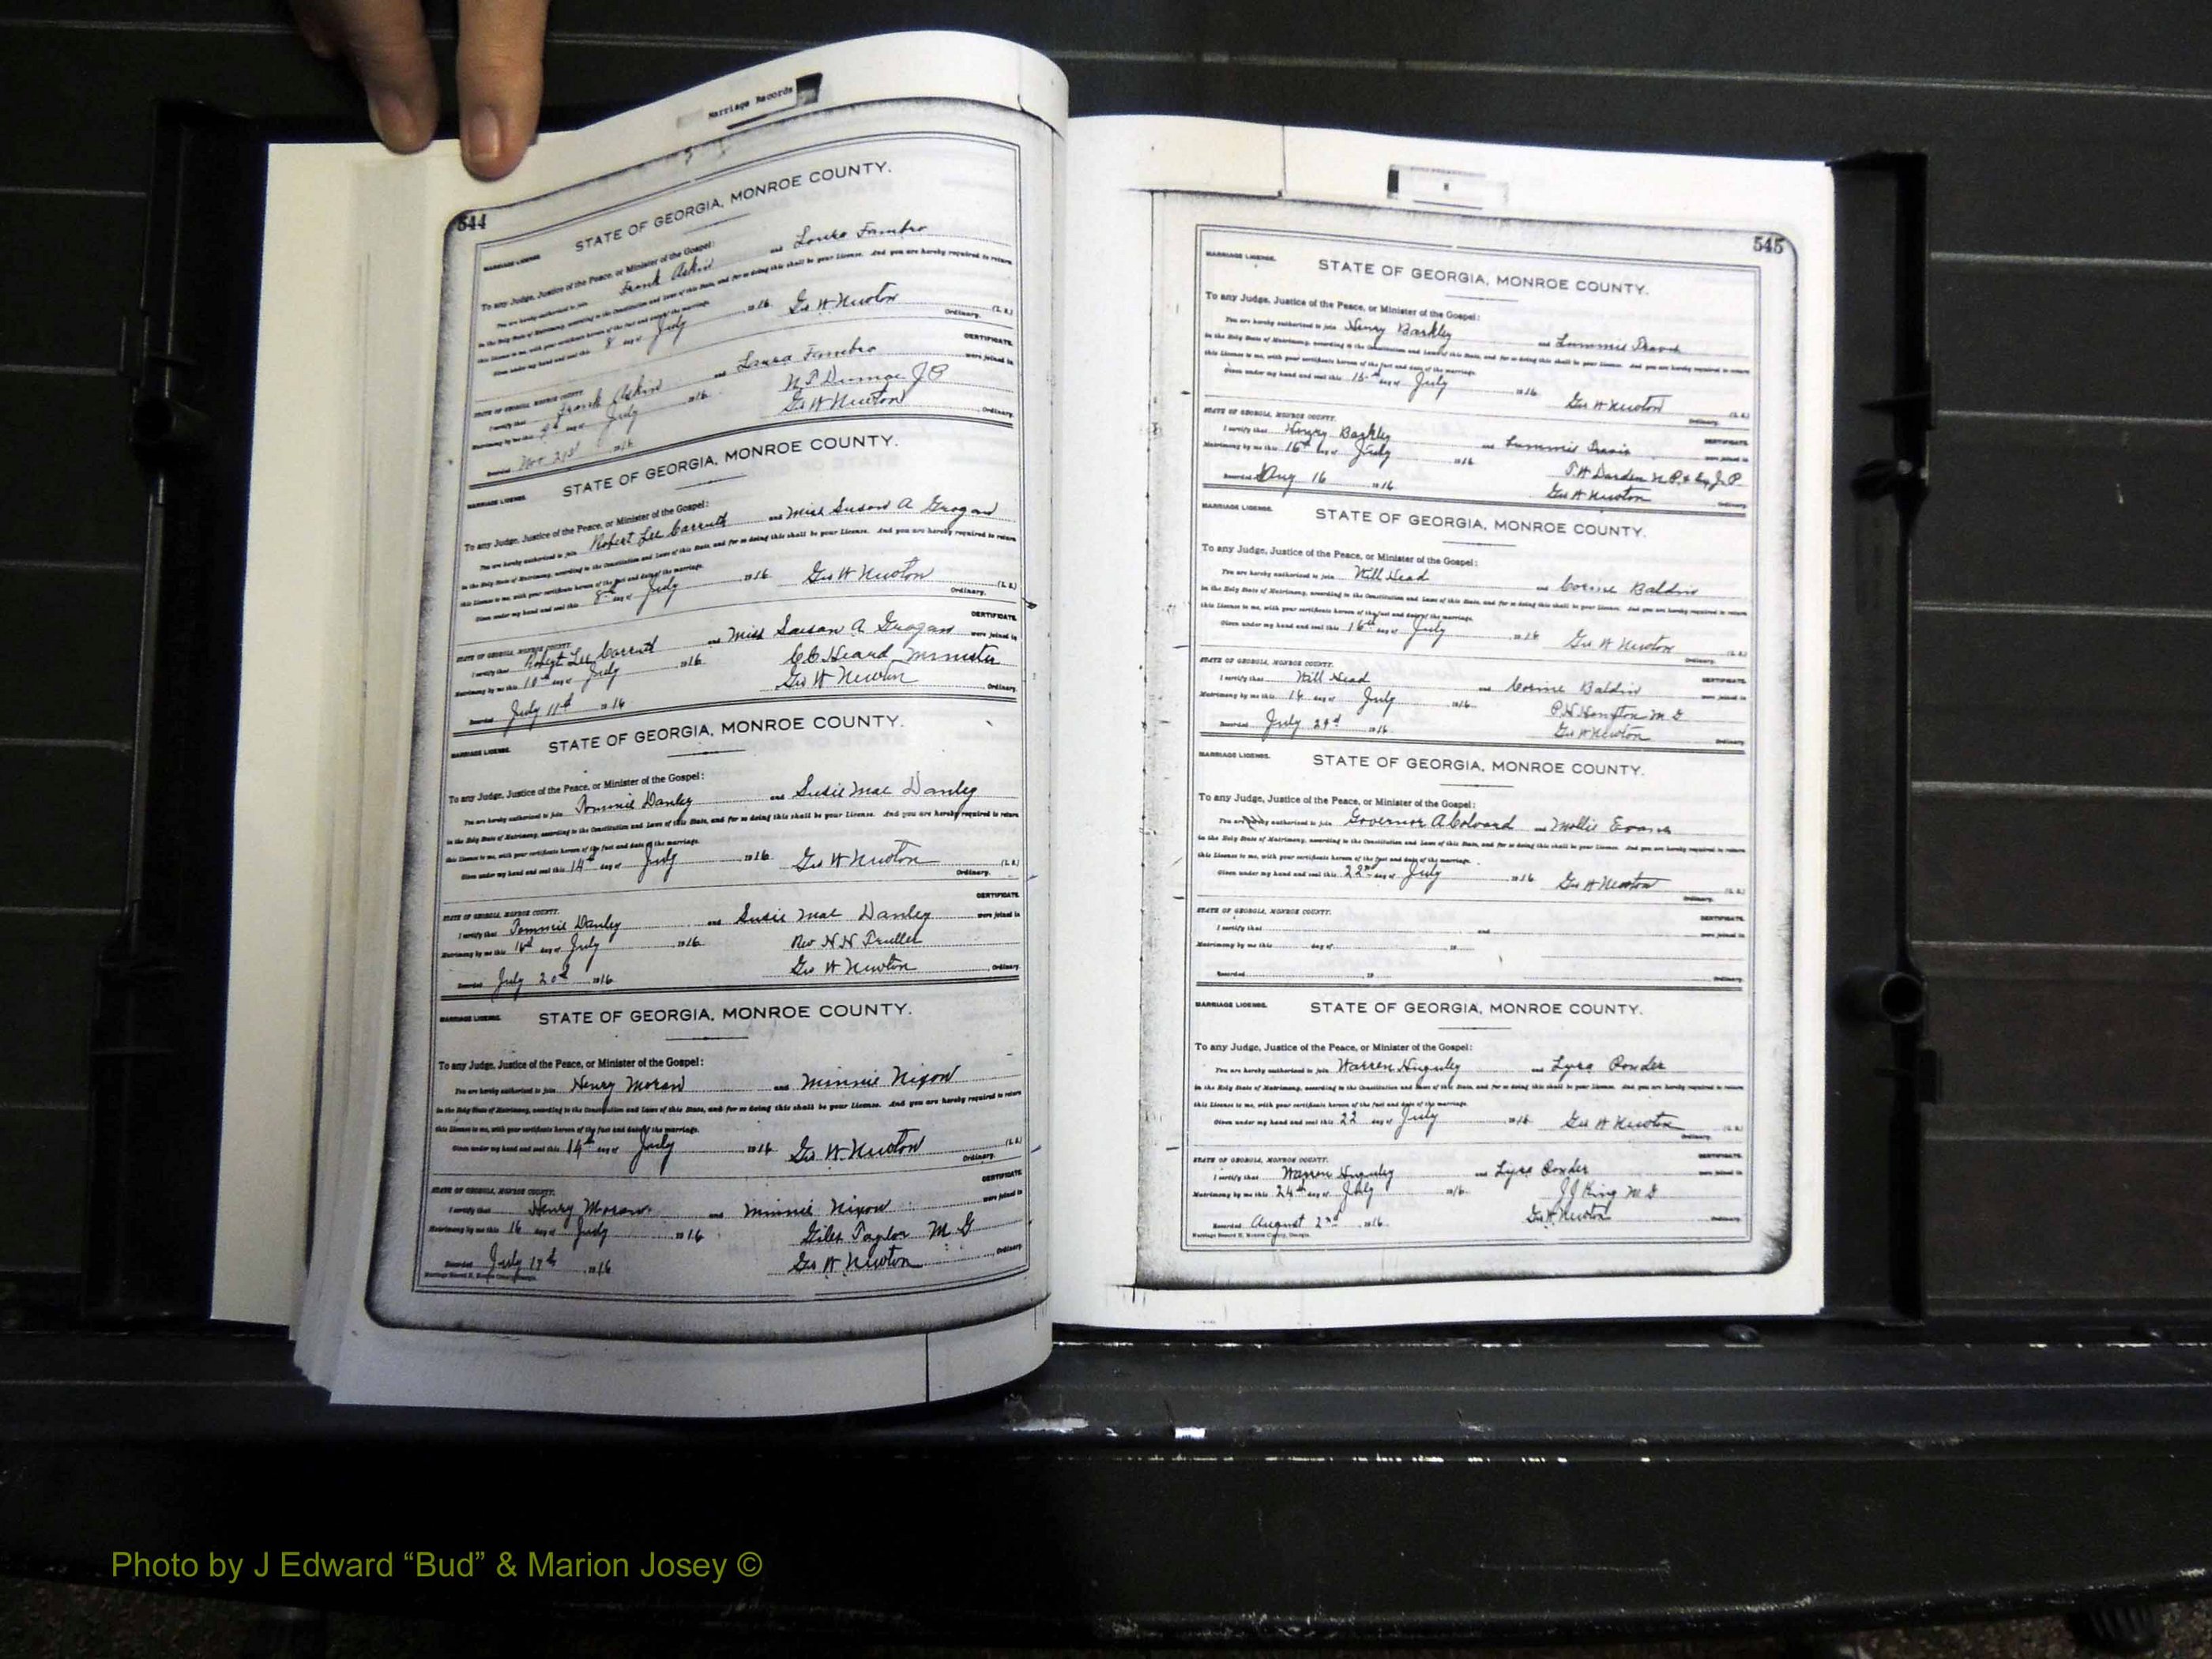 Marriage Records
544
STATE OF GEORGIA, MONROE COUNTY.
MARRIAGE LICENSE.
To any Judge, Justice of the Peace, or Minister of the Gospel:
You are hereby authorized to join Frank Askin and Loura Fambro
in the Holy State of Matrimony, according to the Constitution and Laws of this State, and for so doing this shall be your License. And you are hereby required to return
this License to me, with your certificate hereon of the fact and date of the marriage.
Given under my hand and seal this 8 day of July 1916 Geo W Newton (L. S.)
Ordinary.
CERTIFICATE.
STATE OF GEORGIA, MONROE COUNTY.
I certify that Frank Askin and Loura Fambro were joined in
Matrimony by me this 9th day of July 1916. J P
Recorded Nov 21st 1916 Geo W Newton Ordinary.
STATE OF GEORGIA, MONROE COUNTY.
MARRIAGE LICENSE.
To any Judge, Justice of the Peace, or Minister of the Gospel:
You are hereby authorized to join Robert Lee Carruth and Miss Susan A Grogan
in the Holy State of Matrimony, according to the Constitution and Laws of this State, and for so doing this shall be your License. And you are hereby required to return
this License to me, with your certificate hereon of the fact and date of the marriage.
Given under my hand and seal this 8th day of July 1916 Geo W Newton (L. S.)
Ordinary.
CERTIFICATE.
STATE OF GEORGIA, MONROE COUNTY.
I certify that Robert Lee Carruth and Miss Susan A Grogan were joined in
Matrimony by me this 10th day of July 1916. C C Heard Minister
Recorded July 11th 1916 Geo W Newton Ordinary.
STATE OF GEORGIA, MONROE COUNTY.
MARRIAGE LICENSE.
To any Judge, Justice of the Peace, or Minister of the Gospel:
You are hereby authorized to join Tommie Danley and Susie Mae Danley
in the Holy State of Matrimony, according to the Constitution and Laws of this State, and for so doing this shall be your License. And you are hereby required to return
this License to me, with your certificate hereon of the fact and date of the marriage.
Given under my hand and seal this 14th day of July 1916 Geo W Newton (L. S.)
Ordinary.
CERTIFICATE.
STATE OF GEORGIA, MONROE COUNTY.
I certify that Tommie Danley and Susie Mae Danley were joined in
Matrimony by me this 16th day of July 1916. Rev H H
Recorded July 20th 1916 Geo W Newton Ordinary.
MARRIAGE LICENSE. STATE OF GEORGIA, MONROE COUNTY.
To any Judge, Justice of the Peace, or Minister of the Gospel:
You are hereby authorized to join Henry Moran and Minnie Nixon
in the Holy State of Matrimony, according to the Constitution and Laws of this State, and for so doing this shall be your License. And you are hereby required to return
this License to me, with your certificate hereon of the fact and date of the marriage.
Given under my hand and seal this 14th day of July 1916 Geo W Newton (L. S.)
Ordinary.
CERTIFICATE.
STATE OF GEORGIA, MONROE COUNTY.
I certify that Henry Moran and Minnie Nixon were joined in
Matrimony by me this 16 day of July 1916 Giles Taylor M G
Recorded July 17th 1916 Geo W Newton Ordinary.
Marriage Record H, Monroe County, Georgia.
545
MARRIAGE LICENSE. STATE OF GEORGIA, MONROE COUNTY.
To any Judge, Justice of the Peace, or Minister of the Gospel:
You are hereby authorized to join Henry Barkley and Lummie Travis
in the Holy State of Matrimony, according to the Constitution and Laws of this State, and for so doing this shall be your License. And you are hereby required to return
this License to me, with your certificate hereon of the fact and date of the marriage.
Given under my hand and seal this 15th day of July 1916 Geo W Newton (L. S.)
Ordinary.
STATE OF GEORGIA, MONROE COUNTY. CERTIFICATE.
I certify that Henry Barkley and Lummie Travis were joined in
Matrimony by me this 16th day of July 1916 T. H Darden N.P. & Ex J.P.
Recorded Aug 16 1916 Geo W Newton Ordinary.
MARRIAGE LICENSE. STATE OF GEORGIA, MONROE COUNTY.
To any Judge, Justice of the Peace, or Minister of the Gospel:
You are hereby authorized to join Will Head and Corine Baldin
in the Holy State of Matrimony, according to the Constitution and Laws of this State, and for so doing this shall be your License. And you are hereby required to return
this License to me, with your certificate hereon of the fact and date of the marriage.
Given under my hand and seal this 16th day of July 1916 Geo W Newton (L. S.)
Ordinary.
STATE OF GEORGIA, MONROE COUNTY. CERTIFICATE.
I certify that Will Head and Corine Baldin were joined in
Matrimony by me this 16 day of July 1916. P. H M G
Recorded July 29th 1916 Geo W Newton Ordinary.
MARRIAGE LICENSE. STATE OF GEORGIA, MONROE COUNTY.
To any Judge, Justice of the Peace, or Minister of the Gospel:
You are hereby authorized to join Governor A Colvard and Mollie Evans
in the Holy State of Matrimony, according to the Constitution and Laws of this State, and for so doing this shall be your License. And you are hereby required to return
this License to me, with your certificate hereon of the fact and date of the marriage.
Given under my hand and seal this 22nd day of July 1916 Geo W Newton (L. S.)
Ordinary.
STATE OF GEORGIA, MONROE COUNTY. CERTIFICATE.
I certify that and were joined in
Matrimony by me this day of 19
Recorded 19 Ordinary.
MARRIAGE LICENSE. STATE OF GEORGIA, MONROE COUNTY.
To any Judge, Justice of the Peace, or Minister of the Gospel:
You are hereby authorized to join Warren Huguley and Lyra Ponder
in the Holy State of Matrimony, according to the Constitution and Laws of this State, and for so doing this shall be your License. And you are hereby required to return
this License to me, with your certificate hereon of the fact and date of the marriage.
Given under my hand and seal this 22 day of July 1916 Geo W Newton (L. S.)
Ordinary.
STATE OF GEORGIA, MONROE COUNTY. CERTIFICATE.
I certify that Warren Huguley and Lyra Ponder were joined in
Matrimony by me this 24th day of July 1916. J J King M G
Recorded August 2nd 1916. Geo W. Newton Ordinary.
Marriage Record H, Monroe County, Georgia.
Photo by J Edward “Bud” & Marion Josey ©